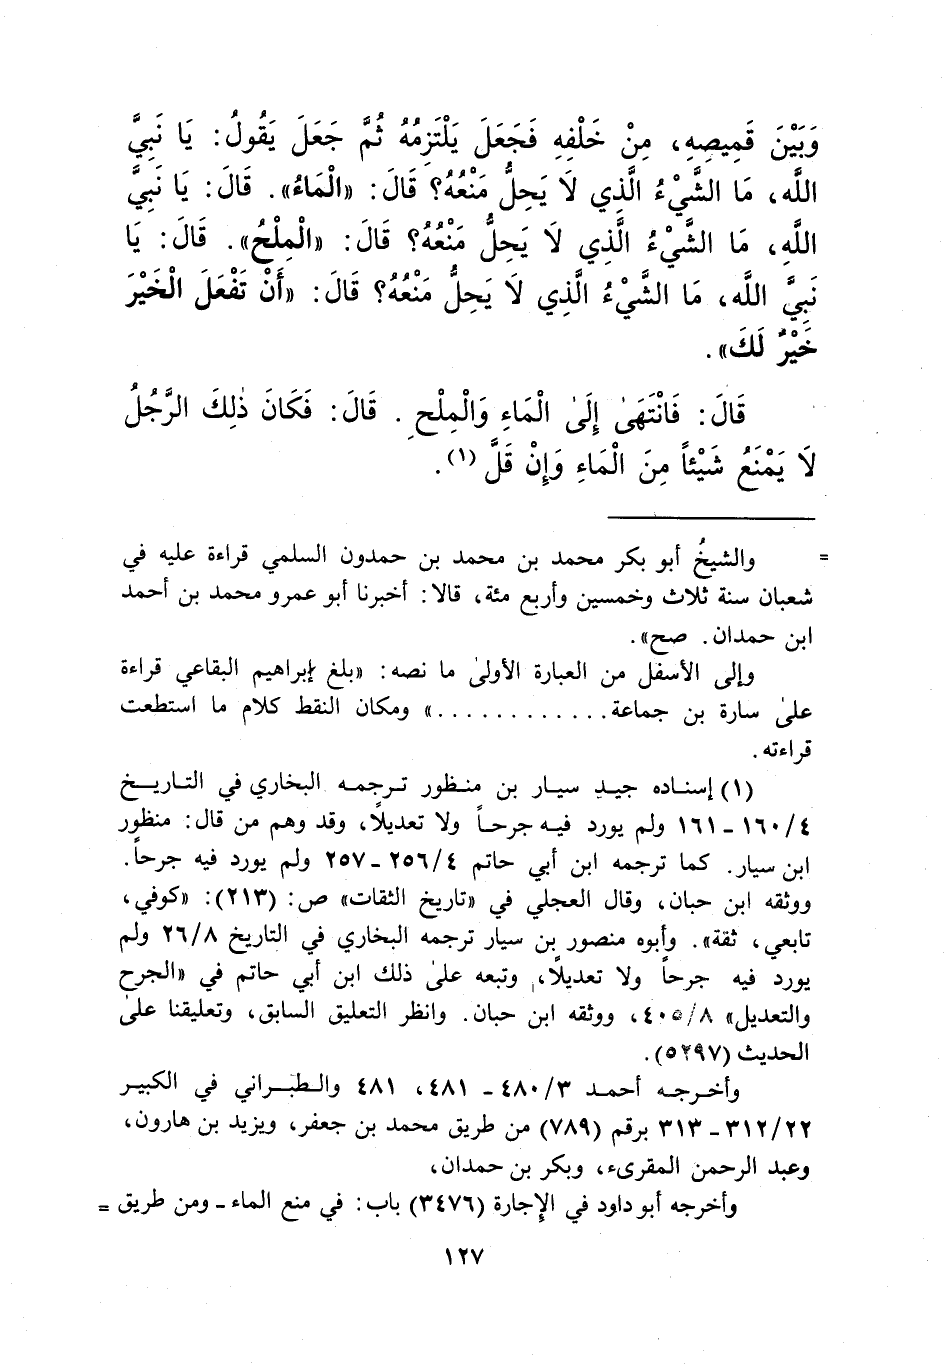 وَبَيْنَ قَمِيصِهِ، مِنْ خَلْفِهِ فَجَعَلَ يَلْتَزِمُهُ ثُمَّ جَعَلَ يَقُولُ: يَا نَبِيَّ
اللَّهِ، مَا الشَّيْءُ الَّذِي لَا يَحِلُّ مَنْعُهُ؟ قَالَ: «الْمَاءُ». قَالَ: يَا نَبِيَّ
اللَّهِ، مَا الشَّيْءُ الَّذِي لَا يَحِلُّ مَنْعُهُ؟ قَالَ: «الْمِلْحُ». قَالَ: يَا
نَبِيَّ اللَّهِ، مَا الشَّيْءُ الَّذِي لَا يَحِلُّ مَنْعُهُ؟ قَالَ: «أَنْ تَفْعَلَ الْخَيْرَ
خَيْرٌ لَكَ».
قَالَ: فَانْتَهَىٰ إِلَىٰ الْمَاءِ وَالْمِلْحِ. قَالَ: فَكَانَ ذٰلِكَ الرَّجُلُ
لَا يَمْنَعُ شَيْئاً مِنَ الْمَاءِ وَإِنْ قَلَّ (١).
= والشيخُ أبو بكر محمد بن محمد بن حمدون السلمي قراءة عليه في
شعبان سنة ثلاث وخمسين وأربع مئة، قالا: أخبرنا أبو عمرو محمد بن أحمد
ابن حمدان. صح».
وإلى الأسفل من العبارة الأولىٰ ما نصه: «بلغ إبراهيم البقاعي قراءة
علىٰ سارة بن جماعة.............» ومكان النقط كلام ما استطعت
قراءته.
(١) إسناده جيد سيار بن منظور ترجمه البخاري في التاريخ
٤/١٦٠ - ١٦١ ولم يورد فيه جرحاً ولا تعديلاً، وقد وهم من قال: منظور
ابن سيار. كما ترجمه ابن أبي حاتم ٤/٢٥٦ - ٢٥٧ ولم يورد فيه جرحاً.
ووثقه ابن حبان، وقال العجلي في «تاريخ الثقات» ص: (٢١٣): «كوفي،
تابعي، ثقة». وأبوه منصور بن سيار ترجمه البخاري في التاريخ ٢٦/٨ ولم
يورد فيه جرحاً ولا تعديلاً، وتبعه علىٰ ذلك ابن أبي حاتم في «الجرح
والتعديل» ٨/٤٠٥، ووثقه ابن حبان. وانظر التعليق السابق، وتعليقنا علىٰ
الحديث (٥٢٩٧).
وأخرجه أحمد ٣/٤٨٠ - ٤٨١، ٤٨١ والطبراني في الكبير
٢٢/٣١٢ - ٣١٣ برقم (٧٨٩) من طريق محمد بن جعفر، ويزيد بن هارون،
وعبد الرحمن المقرىء، وبكر بن حمدان،
وأخرجه أبو داود في الإجارة (٣٤٧٦) باب: في منع الماء - ومن طريق =
١٢٧